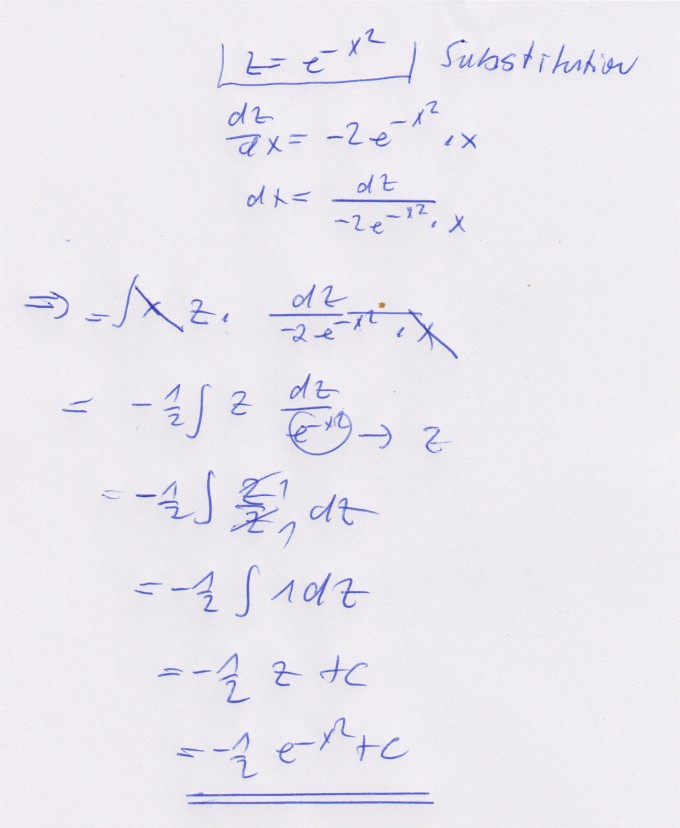 z = e^{-x^2} Substitution
dz/dx = -2e^{-x^2} · x
dx = dz/(-2e^{-x^2} · x)
⇒ = ∫ x z · dz/(-2e^{-x^2} · x)
= -1/2 ∫ z dz/e^{-x^2} → z
= -1/2 ∫ z 1/z 1 dz
= -1/2 ∫ 1 dz
= -1/2 z + C
= -1/2 e^{-x^2} + C